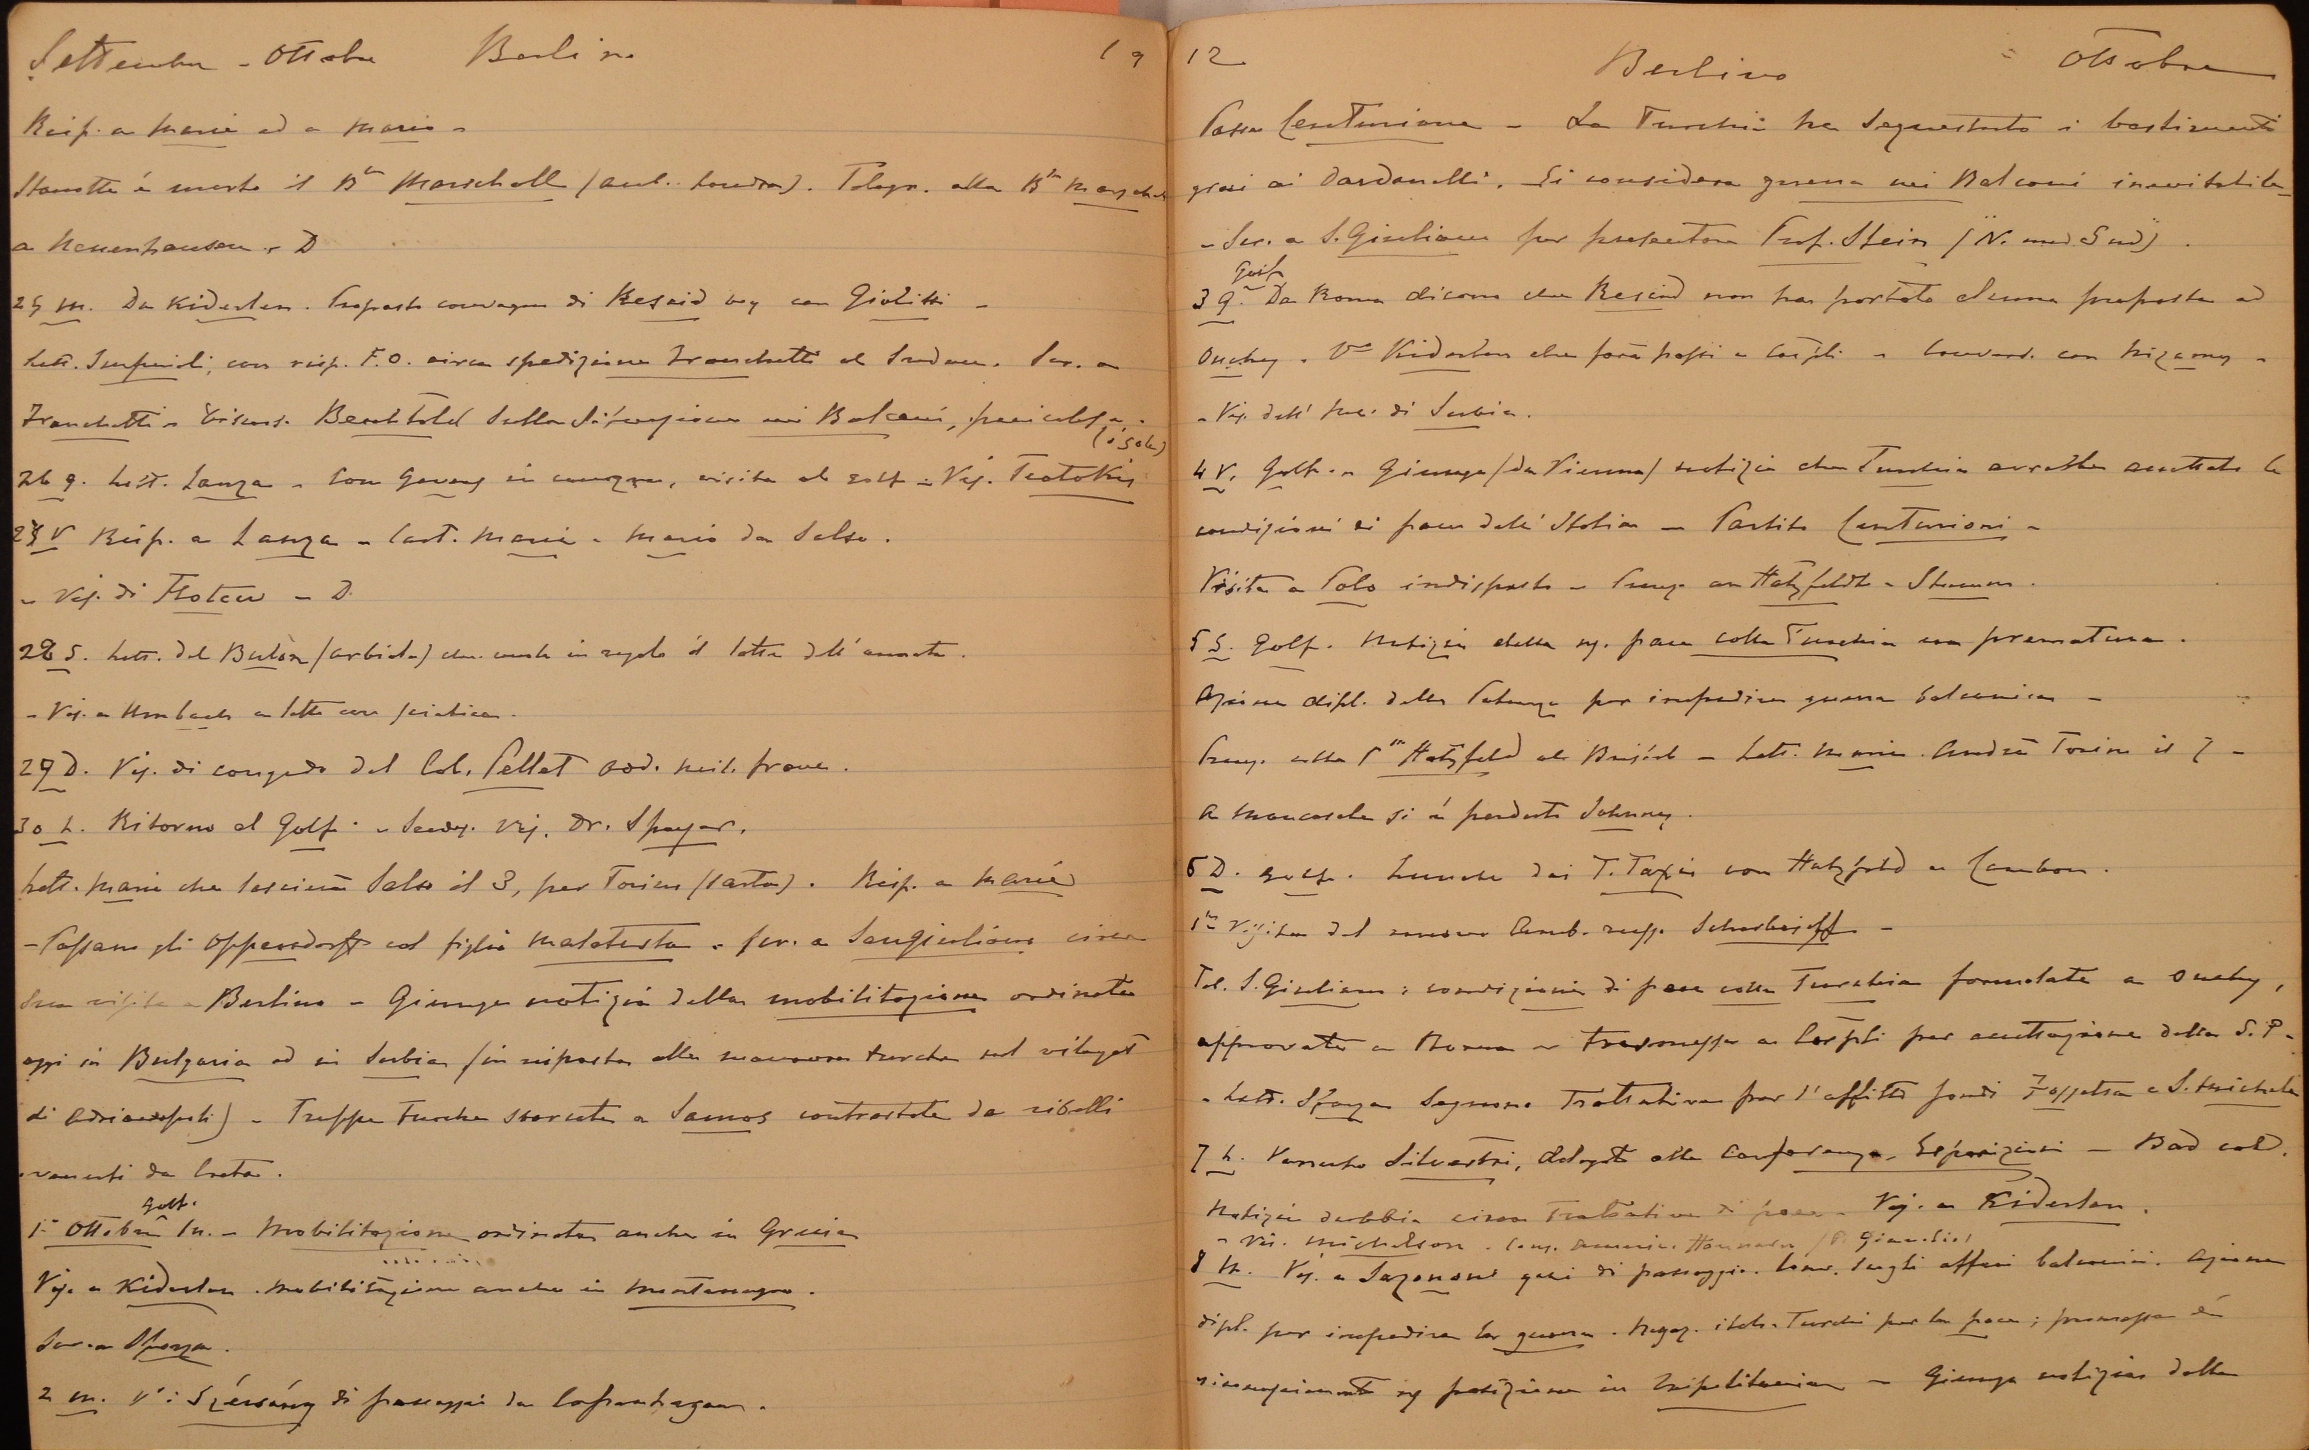 Settembre - Ottobre Berlino 19
Risp. a Marie ed a Mario -
Stanotte è morto il Bn Marschall (amb. Londra). Telegr. alla Bin Marschall
a Neuenhausen - D
25 m. Da Kiderlen. Proposto convegno di Rescid bey con Giolitti -
Lett. Imperiali, con risp. F.O. circa spedizione Franchetti al Sudan. Scr. a
Franchetti - Discuss. Berchtold sulla situazione nei Balcani, pericolosa -
(isole)
26 g. Lett. Lanza - Con in campagna, visita al golf - Vis. Teotokis
27 V Risp. a Lanza - Cart. Marie - Mario da Salso.
- Vis. di Flotow - D.
28 S. Lett. del (arbiola) che mette in regola il latte dell'annata.
- Vis. a a letto con sciatica.
29 D. Vis. di congedo del Col. Pellet add. mil. franc.
30 L. Ritorno al Golf - Vis. Dr. Speyer.
Lett. Marie che lascierà Salso il 3, per Torino (sarta). Risp. a Marie
- Passano gli Oppersdorff col figlio malatesta - Scr. a Sangiuliano circa
sua visita a Berlino - Giunge notizia della mobilitazione ordinata
oggi in Bulgaria ed in Serbia (in risposta alle manovre turche nel vilayet
di Adrianopoli) - Truppe turche sbarcate a Samos contrastate da ribelli
venuti da Creta.
Golf.
1° Ottobre M. - Mobilitazione ordinata anche in Grecia
Vis. a Kiderlen. Mobilitazione anche in Montenegro.
Scr. a Sforza.
2 m. V°: Szécsény di passaggio da Copenhagen.
12 Berlino - Ottobre
Passa Centurione - La Turchia ha sequestrato i bastimenti
greci ai Dardanelli. Si considera guerra nei Balcani inevitabile -
- Scr. a S. Giuliano per presentare Prof. Stein ("N. und Süd").
Golf
3 g. Da Roma dicono che Rescid non ha portato alcuna proposta ad
Ouchy. Vo Kiderlen che farà passi a Cospli - Convers. con Nizamy -
- Vis. dell' Inc. di Serbia.
4 V. Golf - Giunge (da Vienna) notizia che Turchia avrebbe accettato le
condizioni di pace dell' Italia - Partito Centurioni -
Visita a Polo indisposto - Pranz. con Hatzfeldt - Stumm.
5 S. Golf. Notizia della pace colla Turchia era prematura.
Azione dipl. delle Potenze per impedire guerra balcanica -
Pranz. colla Pin Hatzfeld al Bristol - Lett. Marie. Andrà Torino il 7 -
A Moncasale si è perduto Johnny.
6 D. Golf. Lunch dai T. Taxis con Hatzfeld e Cambon.
1a Visita del nuovo Amb. russo Schebeioff -
Tel. S. Giuliano: condizioni di pace colla Turchia formulate a Ouchy,
approvate a Roma e trasmesse a Cospli per accettazione della S.P.
- Lett. Sforza Segnano trattative per l'affitto fondi e S. Michele
7 L. Venuto Silvestri, delegato alla Conferenza Esposizioni -
Notizie dubbie circa trattative di pace - Vis. a Kiderlen.
- Vis. Michelson - Cons. americ. Hannover
8 M. Vis. a Sazonow qui di passaggio. Conv. sugli affari balcanici. Azione
dipl. per impedire la guerra. Negoz. italo-turchi per la pace; premessa è il
riconoscimento ns posizione in Tripolitania - Giunge notizia della